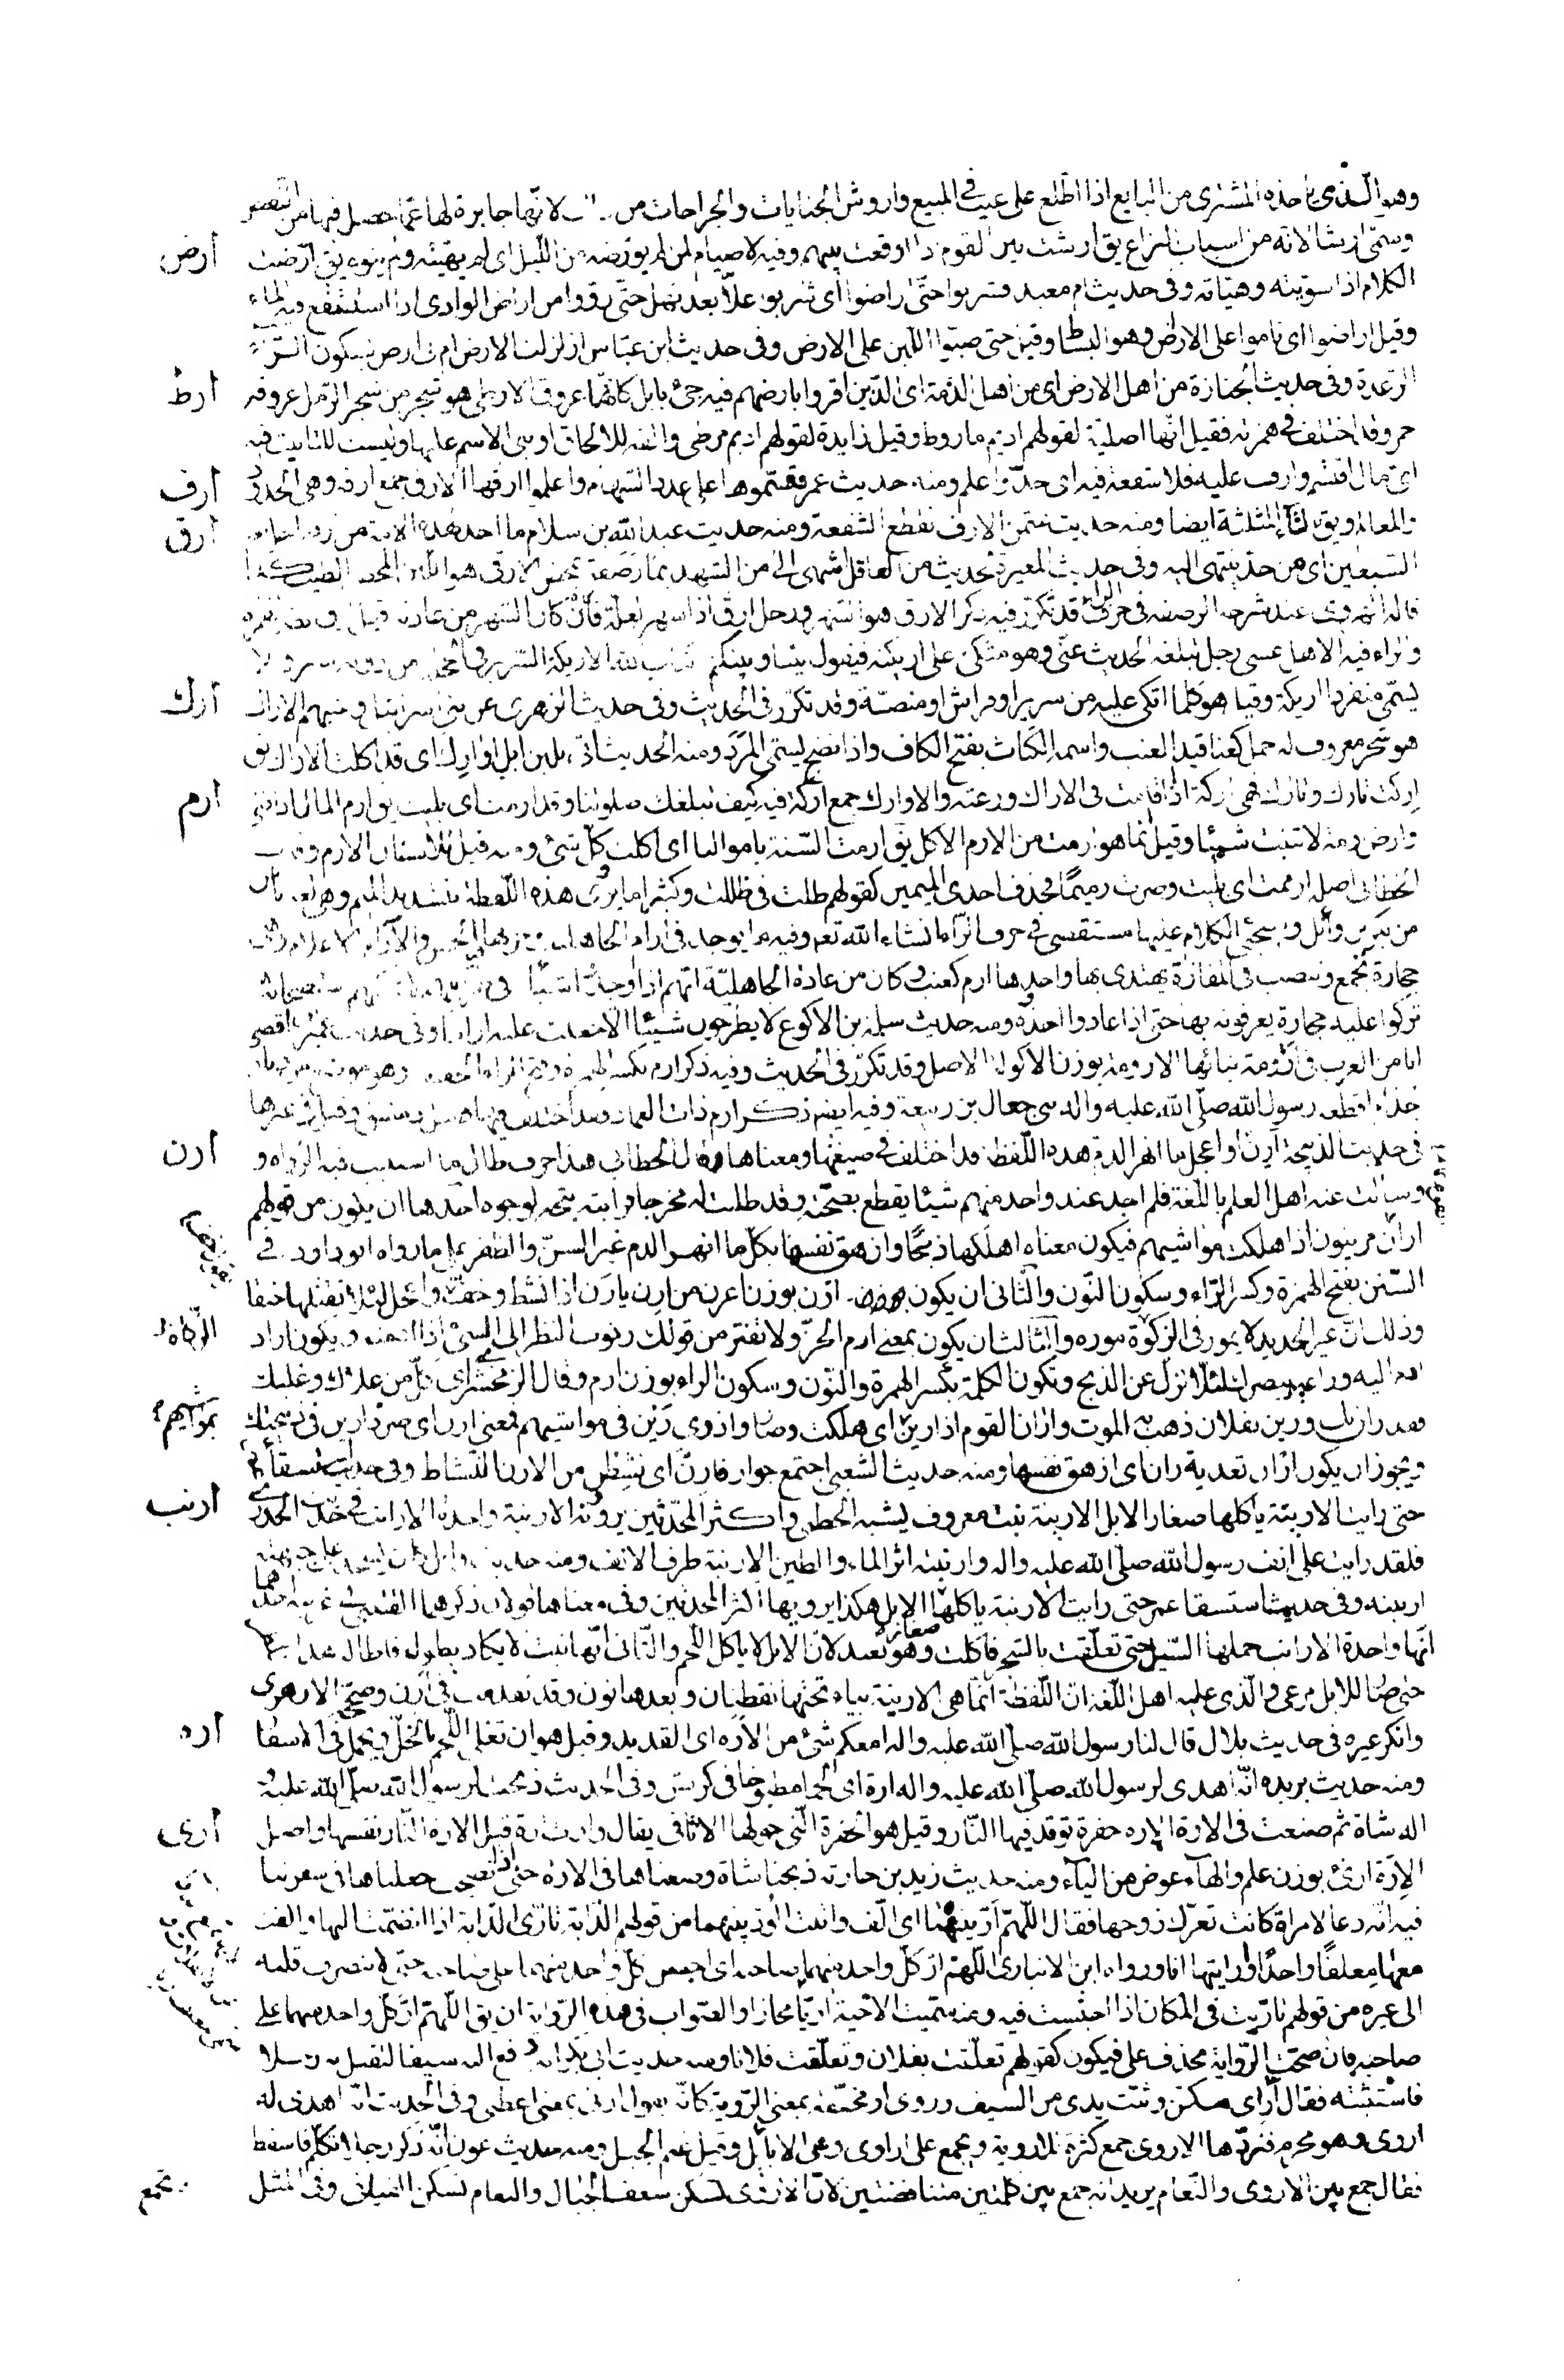 وهو الّذى ياخذه المشترى من البايع اذا اطّلع على عيب فى المبيع واروش الجنايات والجراحات من لانّها جابرة لها عمّا حصل فيها من النقص
وسمّى ارشا لانّه من اسباب النزاع يق ارشت بين القوم اذا اوقعت بينهم وفيه لا صيام لمن لم يؤرّضه من اللّيل اى لم يهيّئه ولم ينوه يق ارّضت
أرض
الكلام اذا سوّيته وهيّاته وفى حديث ام معبد فشربوا حتّى اراضوا اى شربوا عللا بعد نهل حتّى رووا من اراض الوادى اذا استنقع فيه الماء
وقيل اراضوا اى ناموا على الارض وهو البساط وقيل حتى صبّوا اللّبن على الارض وفى حديث ابن عبّاس ازلزلت الارض ام بى ارض بسكون الرّاء
الرّعدة وفى حديث الجنازة من اهل الارض اى من اهل الذمّة اى الّذين اقروا بارضهم فيه جئ بابل كانّها عروق الارطى هو شجر من شجر الرّمل عروقه
أرط
حمر وقد اختلف فى همزته فقيل انّها اصليّة لقولهم اديم ماروط وقيل زايدة لقولهم اديم مرطى والفه للالحاق او بنى الاسم عليها وليست للتانيث فيه
اىّ مال اقتسم وارّف عليه فلا شفعة فيه اى حدّ واعلم ومنه حديث عمر فقسّموها على عدد السّهام واعلموا ارفها الارف جمع ارفه وهى الحدود
أرف
والمعالم ويق بالثّاء المثلثة ايضا ومنه حديث عثمن الارف تقطع الشّفعة ومنه حديث عبد الله بن سلام ما اجد لهذه الامّة من ارفة اجل بعد
أرق
السّبعين اى من حدّ ينتهى اليه وفى حديث المغيرة لحديث من العاقل اشهى الىّ من الشّهد بماء رصفة بمحض الارفى هو اللّبن المحض الطيب كذا
قاله الهروى عند شرحه الرصفة فى حرف الراء قد تكرّر فيه ذكر الارق هو السّهر ورجل ارق اذا سهر لعلّة فان كان السّهر من عادته قيل
والراء فيه الا هل عسى رجل يبلغه الحديث عنّى وهو متّكئ على اريكته فيقول بيننا وبينكم كتاب الله الاريكة السّرير فى الحجلة من دونه ستر ولا
يسمّى منفردا اريكة وقيل هو كلّما اتّكى عليه من سرير او فراش او منصّة وقد تكرّر فى الحديث وفى حديث الزهرى عن بنى اسرائيل وعنبهم الاراك
أرك
هو شجر معروف له حمل كعناقيد العنب واسمه الكباث بفتح الكاف واذا نضج يسمّى المرد ومنه الحديث اتى بلبن ابل اوارك اى قد اكلت الاراك يق
اركت تارك وتارك فهى اركة اذا اقامت فى الاراك ورعته والاوارك جمع اركة فيه كيف تبلغك صلوتنا وقد ارمت اى بليت يق ارم المال اذا فنى
أرم
وارض ارمة لا تنبت شيئا وقيل انّما هو ارمت من الارم الاكل يق ارمت السّنة باموالنا اى اكلت كلّ شئ ومنه قيل للاسنان الارم وقال
الخطّابى اصله ارممت اى بليت وصرت رميمًا فحذف احدى الميمين كقولهم ظلت فى ظللت وكثيرا ما يروى هذه اللّفظة بتشديد الميم وهى لغة ناس
من بكر بن وائل وسيجئ الكلام عليها مستقصى فى حرف الرّاء انشاء الله تعه وفيه ما يوجد فى ارام الجاهلية وخربها فيه الخمس والآرام الاعلام وهى
حجارة تجمع وتنصب فى المفازة يهتدى بها واحدها ارم كعنب وكان من عادة الجاهليّة انّهم اذا وجدوا شيئا فى طريقهم
تركوا عليه حجارة يعرفونه بها حتى اذا عادوا اخذوه ومنه حديث سلمة بن الاكوع لا يطرحون شيئًا الا جعلت عليه اراما وفى حديث عمير بن اقصى
انا من العرب فى ارومة بنائها الارومة بوزن الاكولة الاصل وقد تكرّر فى الحديث وفيه ذكر ارم بكسر الهمزة وفتح الراء الخفيفه وهو موضع من ديار
جذام اقطعه رسول الله صلّى الله عليه واله بنى جعال بن ربيعة وفيه ايضم ذكر ارم ذات العماد وقد اختلف فيها فقيل دمشق وقيل غيرها
فى حديث الذّبيحة ارن او اعجل ما انهر الدم هذه اللّفظة قد اختلف فى صيغتها ومعناها قال الخطّابى هذا حرف طال ما استثبت فيه الرّواة و
أرن
وسالت عنه اهل العلم باللّغة فلم اجد عند واحد منهم شيئا يقطع بصحّته وقد طلبت له مخرجا فرايته يتجه لوجوه احدها ان يكون من قولهم
اران مريئون اذا هلكت مواشيهم فيكون معناه اهلكها ذبحًا وازهق نفسها بكلّ ما انهر الدم غير السنّ والظفر على ما رواه ابو داود فى
السّنن بفتح الهمزة وكسر الرّاء وسكون النّون والثّانى ان يكون ارن بوزن اعرن من ارن يارن اذا نشط وخفّ واعجل لئلّا تقتلها خنقا
وذلك انّ غير الحديد لا يمور فى الزّكوة موره والثّالث ان يكون بمعنى ادم الحزّ ولا تفتر من قولك رنوت النظر الى الشئ اذا ادمته ويكون اراد
الزّكاة
ادم النّظر اليه وراعه ببصرك لئلّا تزل عن الذّبح وتكون الكلمة بكسر الهمزة والنّون وسكون الراء بوزن ارم وقال الزمخشرى كلّ من علاك وغلبك
فقد ران بك ورين بفلان ذهب به الموت واران القوم اذا رين اى هلكت مواشيهم وصاروا ذوى رين فى مواشيهم فمعنى ارن اى صر ذا رين فى ذبيحتك
بمواشيهم
ويجوز ان يكون اران تعدية ران اى ازهق نفسها ومنه حديث الشعبى اجتمع جوار فارنّ اى نشطن من الارن النّشاط وفى حديث استسقاء عمر
حتى رايت الارينة ياكلها صغار الابل الارينة نبت معروف يشبه الخطمى واكثر المحدّثين يرونه الارنبة واحدة الارانب فى حديث الخدرى
أرنب
فلقد رايت على انف رسول الله صلّى الله عليه واله وارنبته اثر الماء والطين الارنبة طرف الانف ومنه حديث وائل كان يسجد على جبهته و
ارنبته وفى حديث استسقاء عمر حتى رايت الارنبة ياكلها صغار الابل هكذا يرويها اكثر المحدثين وفى معناها قولان ذكرهما القتيبى فى غريبه احدهما
انّها واحدة الارانب حملها السّيل حتى تعلّقت بالشجر فاكلت وهو بعيد لانّ الابل لا ياكل اللّحم والثّانى انّها نبت لا يكاد يطول فاطاله هذا المطر
حتى صار للابل مرعى والّذى عليه اهل اللّغة انّ اللّفظة انّما هى الارينة بياء تحتها نقطتان وبعدها نون وقد تقدّمت فى ارن وصحّحه الازهرى
وانكر غيره فى حديث بلال قال لنا رسول الله صلّى الله عليه واله امعكم شئ من الارة اى القديد وقيل هو ان تغلى اللّحم بالخلّ ويحمل فى الاسفار
أره
ومنه حديث بريده انّه اهدى لرسول الله صلّى الله عليه واله ارة اى لحما مطبوخا فى كرش وفى الحديث ذبحت لرسول الله صلّى الله عليه و
اله شاة ثم صنعت فى الارة الارة حفرة توقد فيها النّار وقيل هو الحفرة الّتى حولها الاثافى يقال وارت ارة وقيل الارة النّار نفسها واصل
أرى
الارة ارئ بوزن علم والهاء عوض من الياء ومنه حديث زيد بن حارثه ذبحنا شاة وصنعناها فى الارة حتى اذا نضجت جعلناها فى سفرتنا
فيه انّه دعا لامراة كانت تفرك زوجها فقال اللّهمّ ارّ بينهما اى الّف واثبت الودّ بينهما من قولهم الدّابة تارى الدّابة اذا انضمّت اليها والفت
معها معلفًا واحدًا واريتها انا ورواه ابن الانبارى اللّهمّ ارّ كلّ واحد منهما صاحبه اى احبس كلّ واحد منهما على صاحبه حتى لا ينصرف قلبه
الى غيره من قولهم تارّيت فى المكان اذا احتبست فيه وبه سمّيت الاخيّة اريّا مجازا والصّواب فى هذه الرّواية ان يق اللّهمّ ارّ كلّ واحد منهما على
صاحبه فان صحّت الرّواية بحذف على فيكون كقولهم تعلّقت بفلان وتعلّقت فلانا ومنه حديث ابى بكر انّه دفع اليه سيفا ليقتل به رجلا
فاستثبته فقال ارّ اى مكّن وثبّت يدى من السيف وروى ار مخفّفة بمعنى الرّوية كانّه يقول ارنى بمعنى اعطنى وفى الحديث انّه اهدى له
اروى وهو محرم فردّها الاروى جمع كثرة للاروية ويجمع على اراوى وهى الايايل وقيل غنم الجبل ومنه حديث عون انّه ذكر رجلا تكلّم فاسقط
فقال جمع بين الاروى والنّعام يريد انّه جمع بين كلمتين متناقضتين لانّ الاروى تسكن شعف الجبال والنعام تسكن الفيافى وفى المثل
تجمع